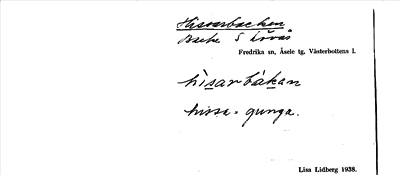 Hissarbacken
backe S Lövås
Fredrika sn, Åsele tg. Västerbottens l.
hìsarbákan
hissa = gunga.
Lisa Lidberg 1938.